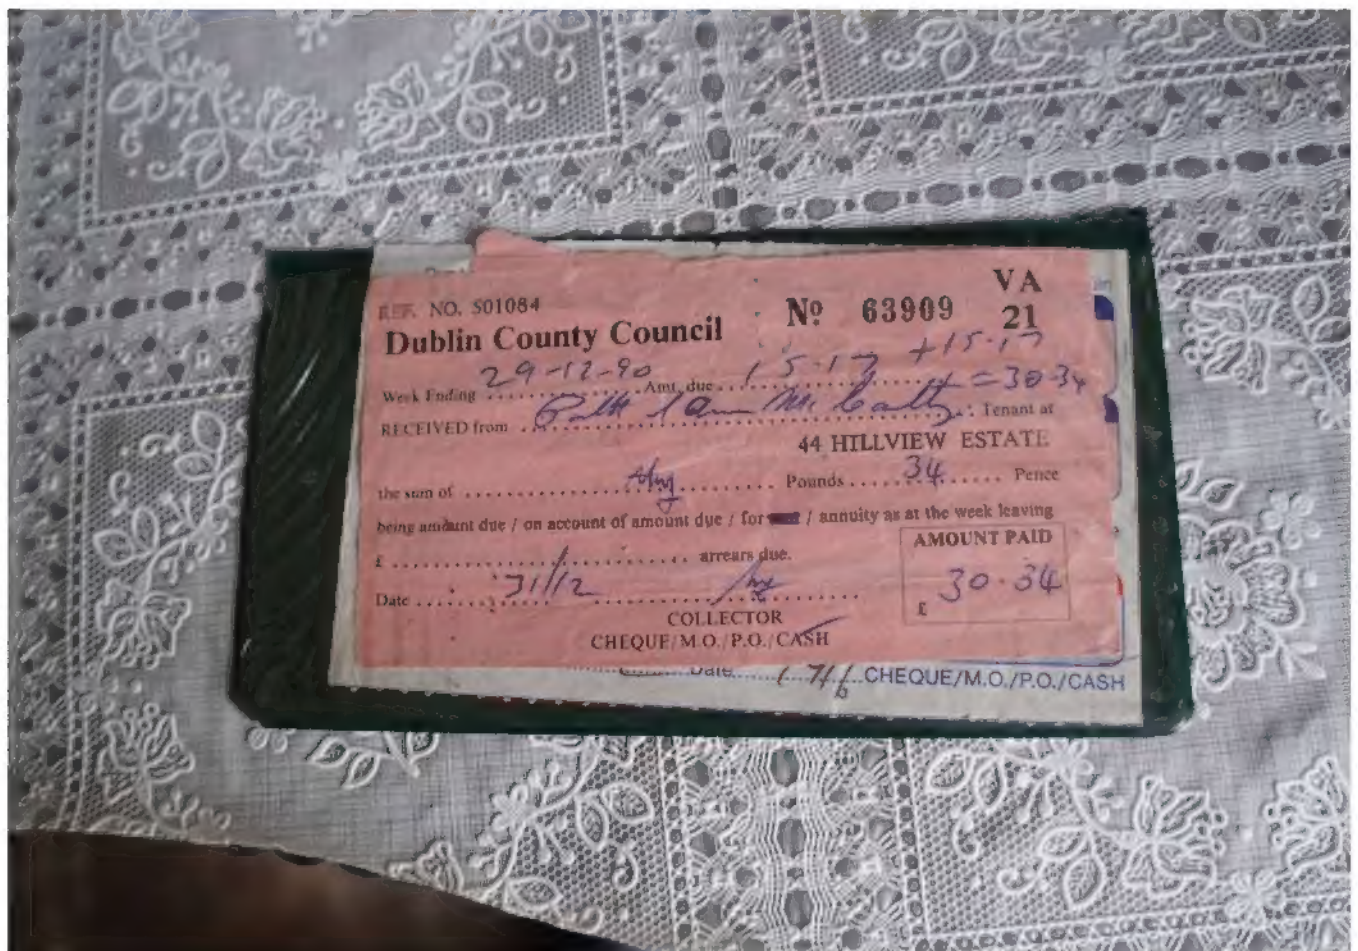 REF. NO. S01084
Dublin County Council
Nº 63909
VA
21
Week Ending 29-12-90 Amt. due 15-17 +15-17
= 30-34
RECEIVED from Patk & Ann Mc Carthy Tenant at
44 HILLVIEW ESTATE
the sum of thirty Pounds 34 Pence
being amount due / on account of amount due / for / annuity as at the week leaving
£ / arrears due.
Date 31/12
COLLECTOR
CHEQUE/M.O./P.O./CASH
AMOUNT PAID
£ 30.34
Date CHEQUE/M.O./P.O./CASH